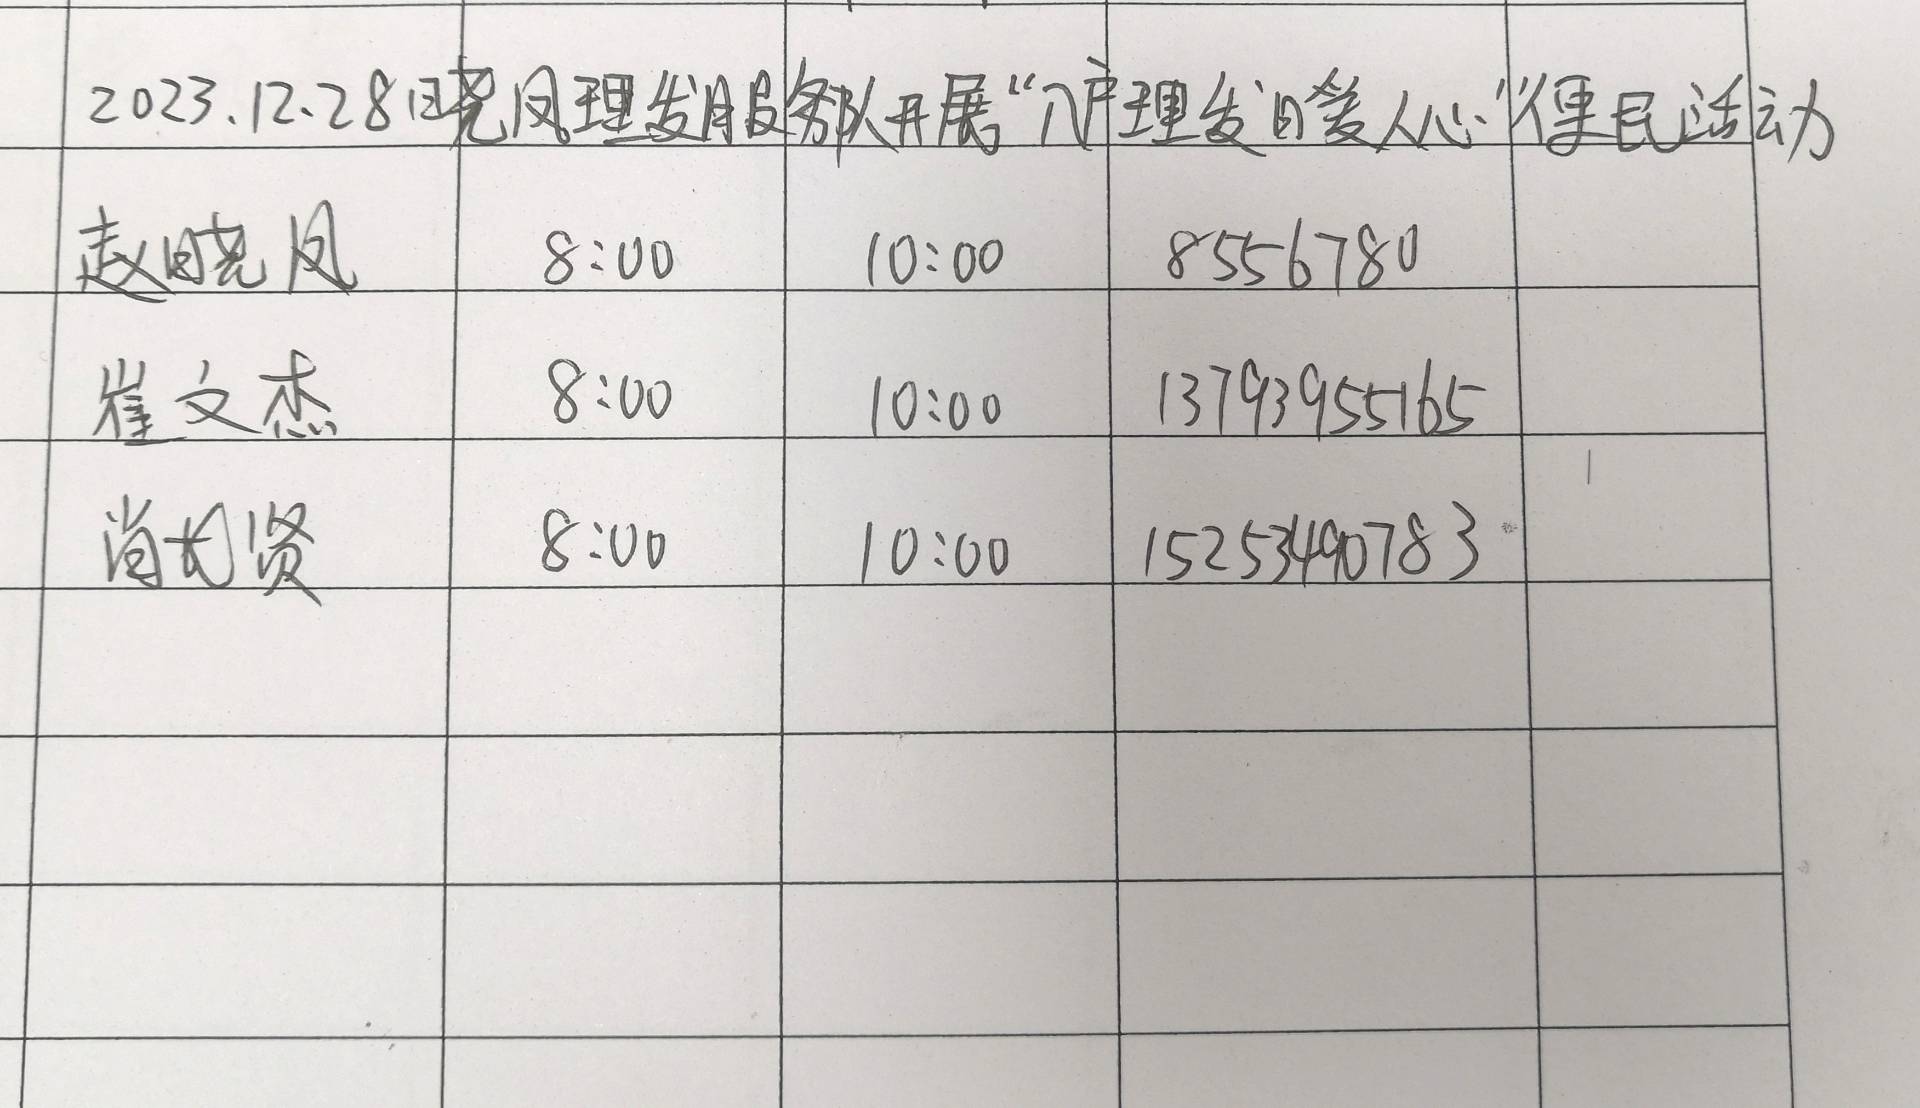 2023.12.28日晓凤理发服务队开展“入户理发暖人心”便民活动
赵晓凤 8:00 10:00 8556780
崔文杰 8:00 10:00 13793955165
肖长贤 8:00 10:00 15253490783